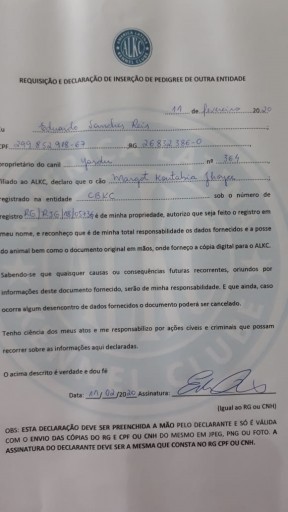 ALKC
REQUISIÇÃO E DECLARAÇÃO DE INSERÇÃO DE PEDIGREE DE OUTRA ENTIDADE
11 de fevereiro 2020
Eduardo Sanches Reis
CPF 299.852.978-67 RG 26852386-0
proprietário do canil nº 364
filiado ao ALKC, declaro que o cão Margot
registrado na entidade CBKC sob o número de
registro é de minha propriedade, autorizo que seja feito o registro em
meu nome, e reconheço que é de minha total responsabilidade os dados fornecidos e a posse
do animal bem como o documento original em mãos, onde forneço a cópia digital para o ALKC.
Sabendo-se que quaisquer causas ou consequências futuras recorrentes, oriundos por
informações deste documento fornecido, serão de minha responsabilidade. E que ainda, caso
ocorra algum desencontro de dados fornecidos o documento poderá ser cancelado.
Tenho ciência dos meus atos e me responsabilizo por ações civeis e criminais que possam
recorrer sobre as informações aqui declaradas.
O acima descrito é verdade e dou fé
Data: 11/02/2020 Assinatura:
(Igual ao RG ou CNH)
OBS: ESTA DECLARAÇÃO DEVE SER PREENCHIDA A MÃO PELO DECLARANTE E SÓ É VÁLIDA
COM O ENVIO DAS CÓPIAS DO RG E CPF OU CNH DO MESMO EM JPEG, PNG OU FOTO. A
ASSINATURA DO DECLARANTE DEVE SER A MESMA QUE CONSTA NO RG CPF OU CNH.